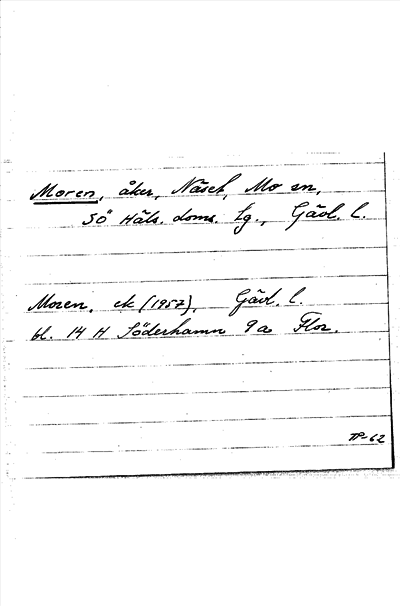 Moren, åker, Näset, Mo sn,
SÖ Häls. doms. tg., Gävl. l.
Moren. ek (1957), Gävl. l.
bl. 14 H Söderhamn 9 a Flor.
TP-62